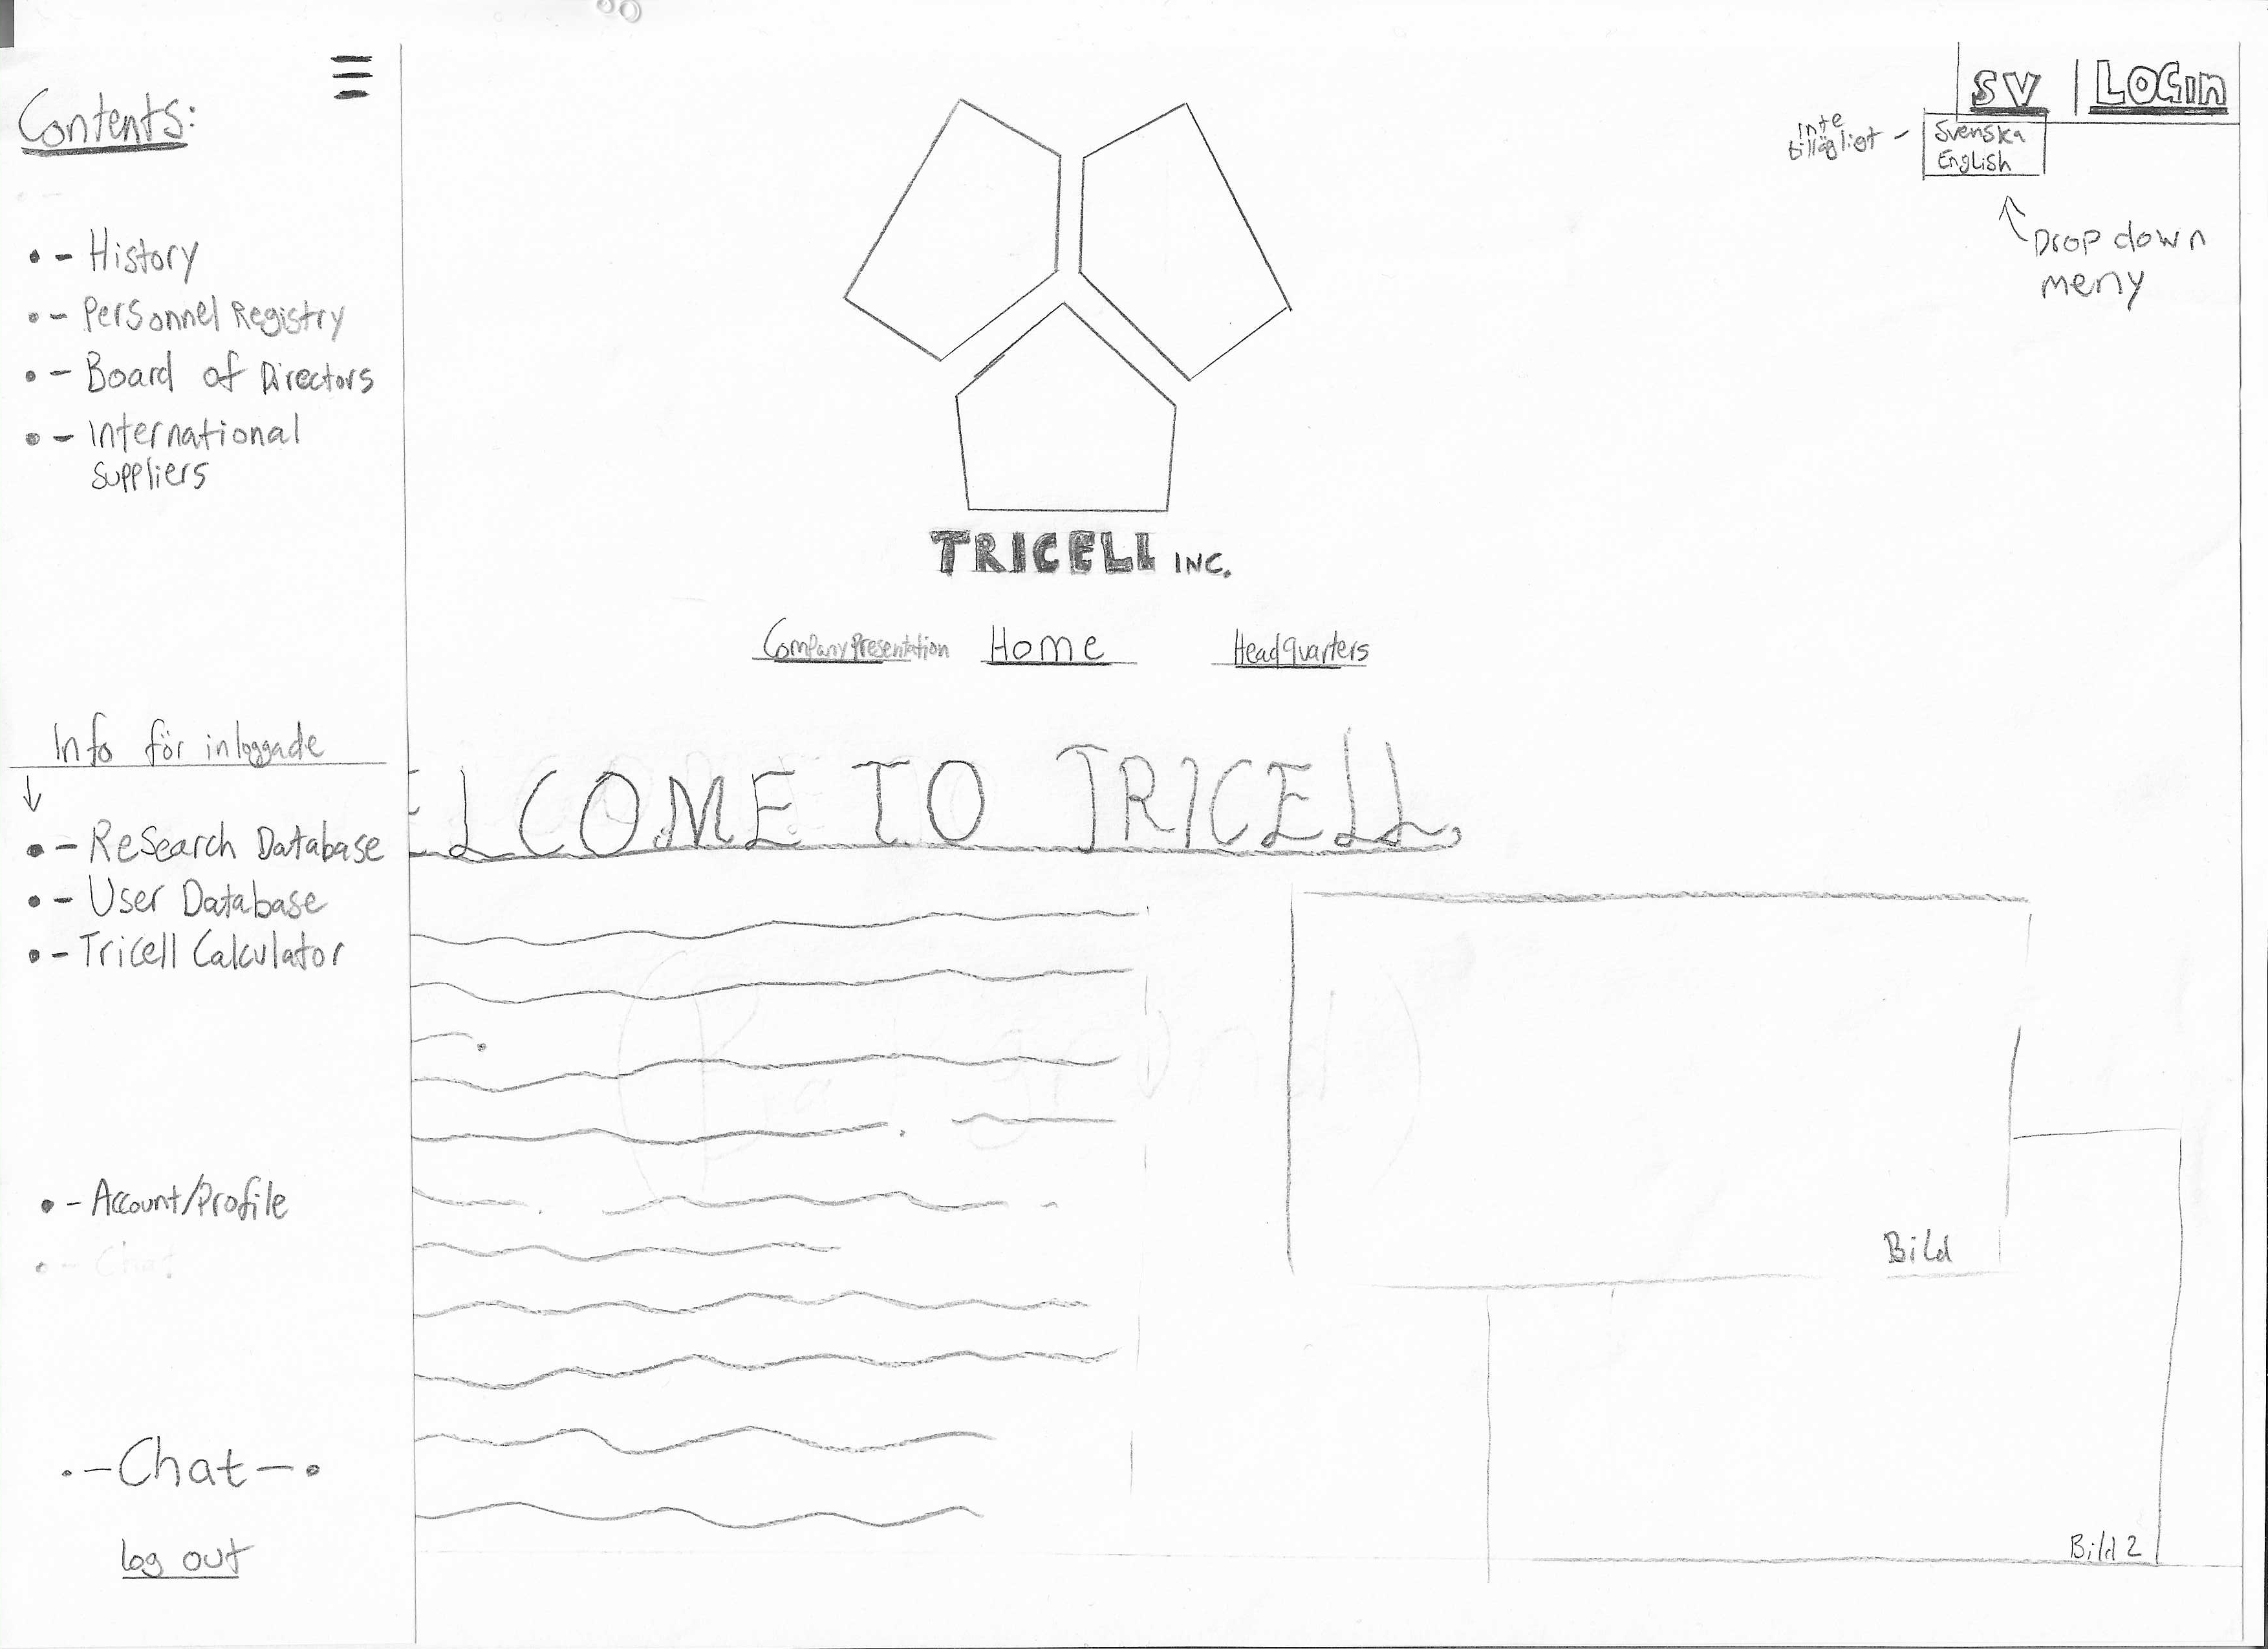 Contents:
- History
- Personnel Registry
- Board of Directors
- International
suppliers
Info för inloggade
- Research Database
- User Database
- Tricell Calculator
- Account/Profile
- Chat
-Chat-
log out
SV | LOGIN
inte
tillägligt -
Svenska
English
Drop down
meny
TRICELL INC.
Company Presentation Home Headquarters
ELCOME TO TRICELL.
Bild
Bild 2